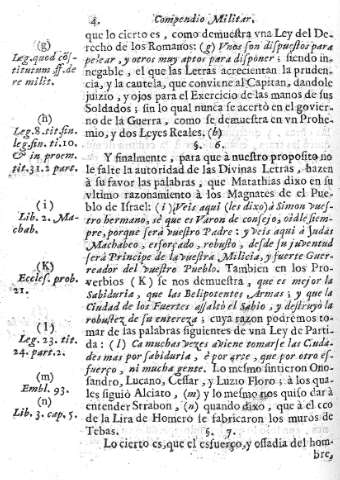 4. Compendio Militar.
que lo cierto es, como demuestra vna Ley del De-
recho de los Romanos: (g) Vnos son dispuestos para
pelear, y otros muy aptos para disponer; siendo in-
negable, el que las Letras acrecientan la pruden-
cia, y la cautela, que conviene al Capitan, dandole
juizio, y ojos para el Exercicio de las manos de sus
Soldados; sin lo qual nunca se acertò en el govier-
no de la Guerra, como se demuestra en vn Prohe-
mio, y dos Leyes Reales. (h)
§. 6.
Y finalmente, para que à nuestro proposito no
le falte la autoridad de las Divinas Letras, hazen
à su favor las palabras, que Matathias dixo en su
vltimo razonamiento à los Magnates de el Pue-
blo de Israel: (i) Veis aqui (les dixo) à Simon vues-
tro hermano, sè que es Varon de consejo, oidle siem-
pre, porque serà vuestro Padre: y veis aqui à Judas
Machabeo, esforçado, robusto, desde su juventud
serà Principe de la vuestra Milicia, y fuerte Guer-
reador del vuestro Pueblo. Tambien en los Pro-
verbios (K) se nos demuestra, que es mejor la
Sabiduria, que las Belipotentes Armas; y que la
Ciudad de los Fuertes assaltò el Sabio, y destruyò la
robustez de su entereza; cuya razon podrèmos to-
mar de las palabras siguientes de vna Ley de Parti-
da: (l) Ca muchas vezes aviene tomarse las Ciuda-
des mas por sabiduria, è por arte, que por otro es-
fuerço, ni mucha gente. Lo mesmo sintieron Ono-
sandro, Lucano, Cessar, y Luzio Floro; à los qua-
les siguiò Alciato, (m) y lo mesmo nos quiso dar à
entender Strabon, (n) quando dixo, que à el eco
de la Lira de Homero se fabricaron los muros de
Tebas.
§. 7.
Lo cierto es, que el esfuerço, y ossadia del hom-
bre,
(g)
Leg. quod côs-
titutum ff. de
re milit.
(h)
Leg. 8. tit. fin.
leg. fin. ti. 10.
& in proem.
tit. 31. 2 part.
(i)
Lib. 2. Ma-
chab.
(K)
Eccles. prob.
21.
(l)
Leg. 23. tit.
24. part. 2.
(m)
Embl. 93.
(n)
Lib. 3. cap. 5.